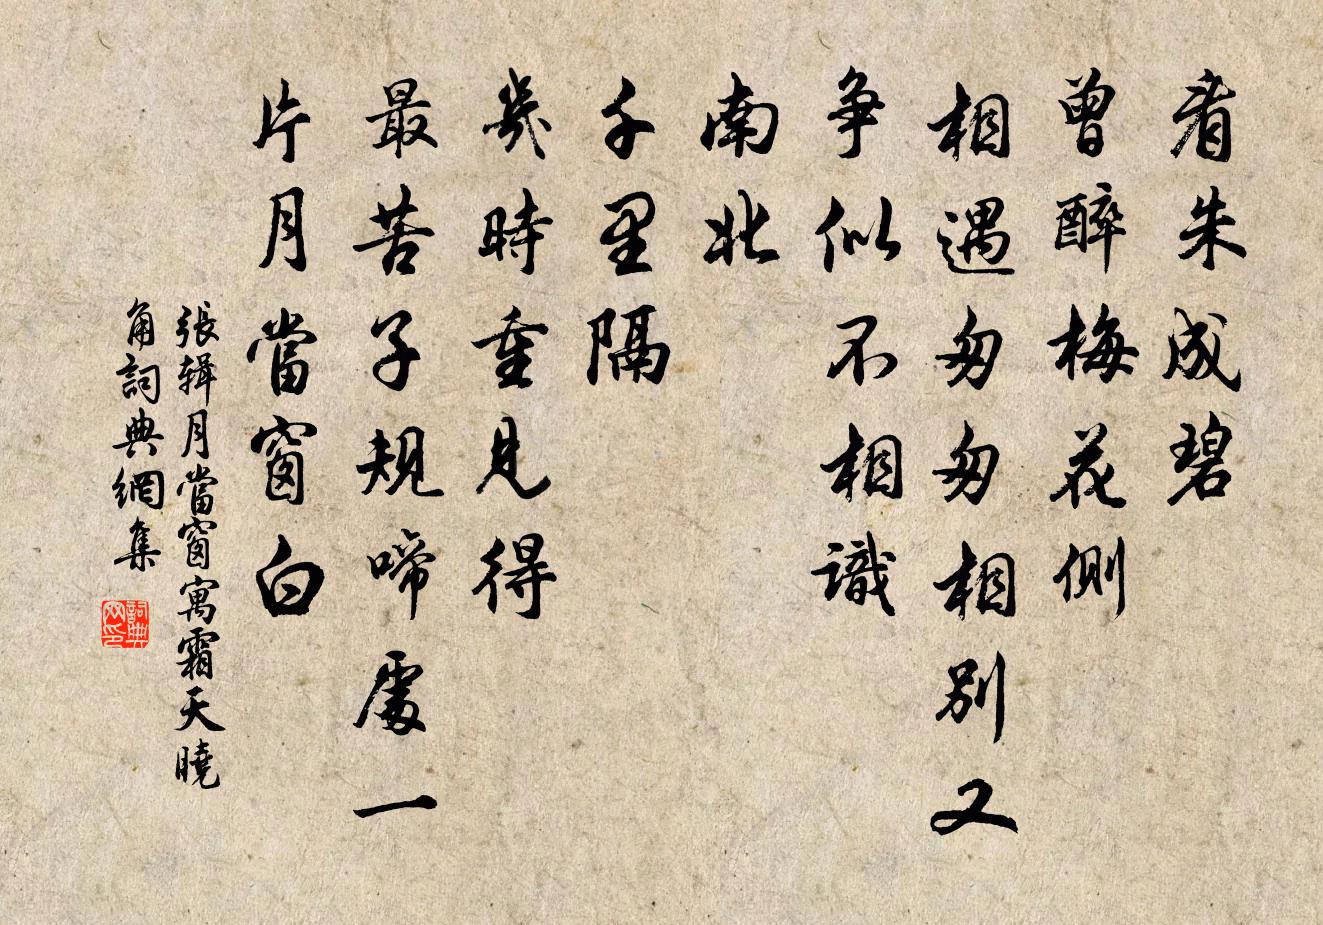 看朱成碧
曾醉梅花側
相遇匆匆相別又
爭似不相識
南北
千里隔
幾時重見得
最苦子規啼處一
片月當窗白
張輯月當窗寓霜天曉
角詞典網集
詞典
网印